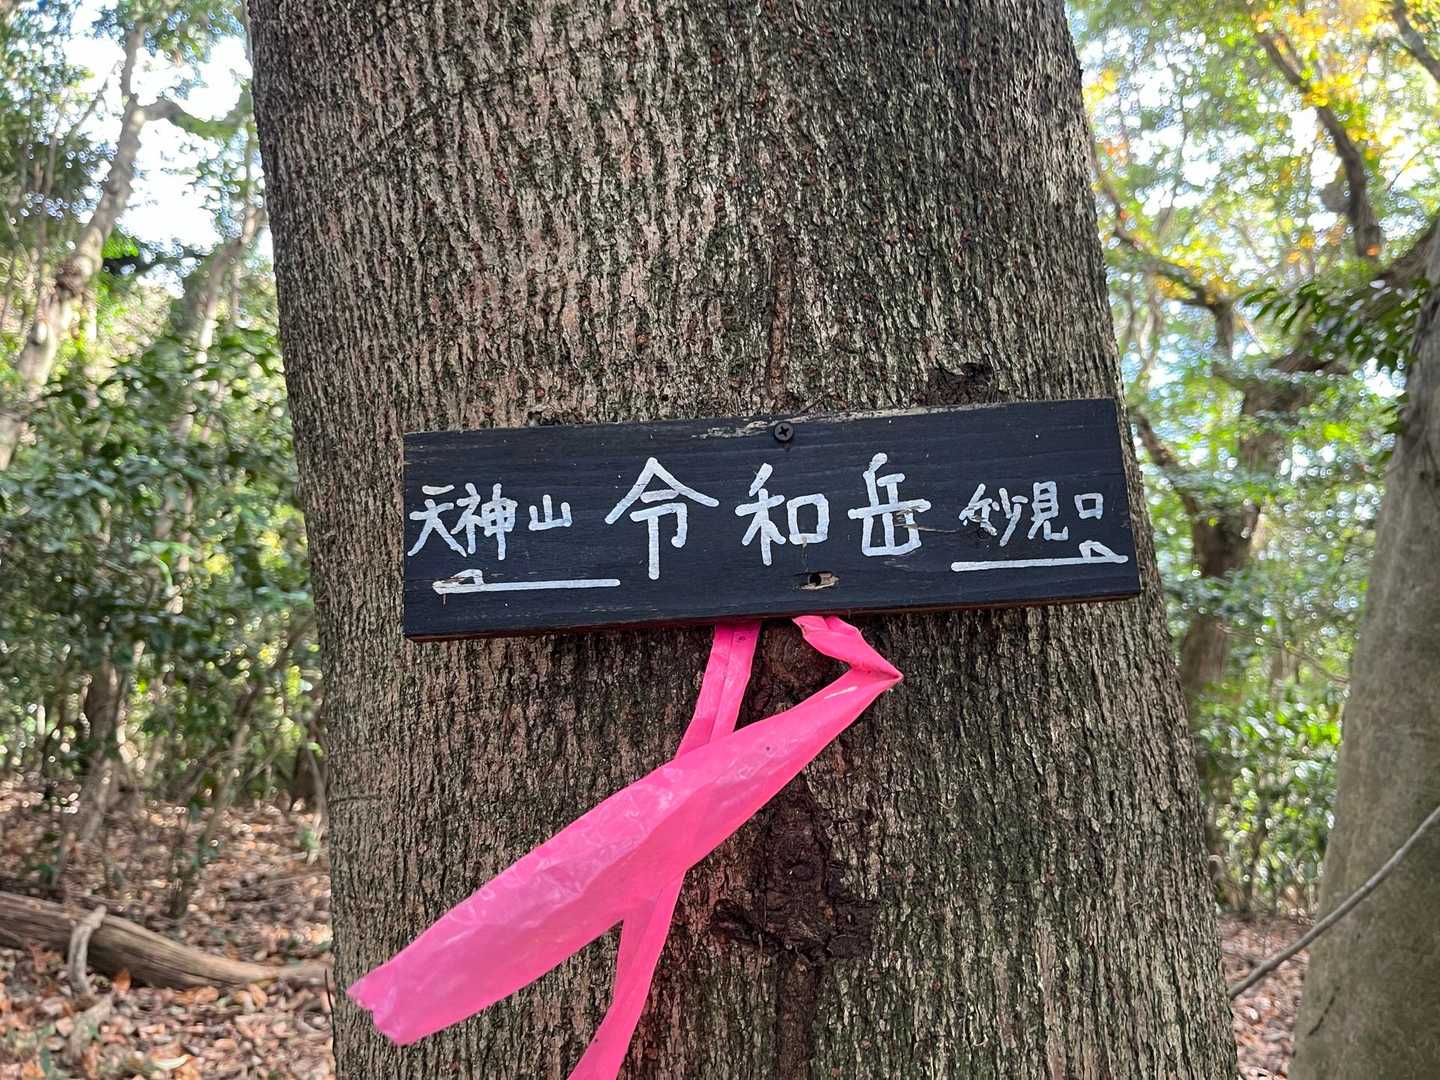 天神山 令和岳 妙見口